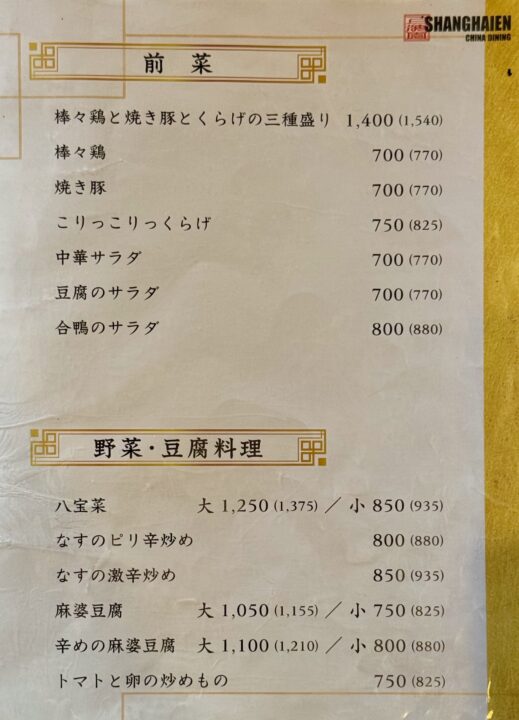 SHANGHAIEN
CHINA DINING
前菜
棒々鶏と焼き豚とくらげの三種盛り 1,400 (1,540)
棒々鶏 700 (770)
焼き豚 700 (770)
こりっこりっくらげ 750 (825)
中華サラダ 700 (770)
豆腐のサラダ 700 (770)
合鴨のサラダ 800 (880)
野菜・豆腐料理
八宝菜 大 1,250 (1,375) ／ 小 850 (935)
なすのピリ辛炒め 800 (880)
なすの激辛炒め 850 (935)
麻婆豆腐 大 1,050 (1,155) ／ 小 750 (825)
辛めの麻婆豆腐 大 1,100 (1,210) ／ 小 800 (880)
トマトと卵の炒めもの 750 (825)